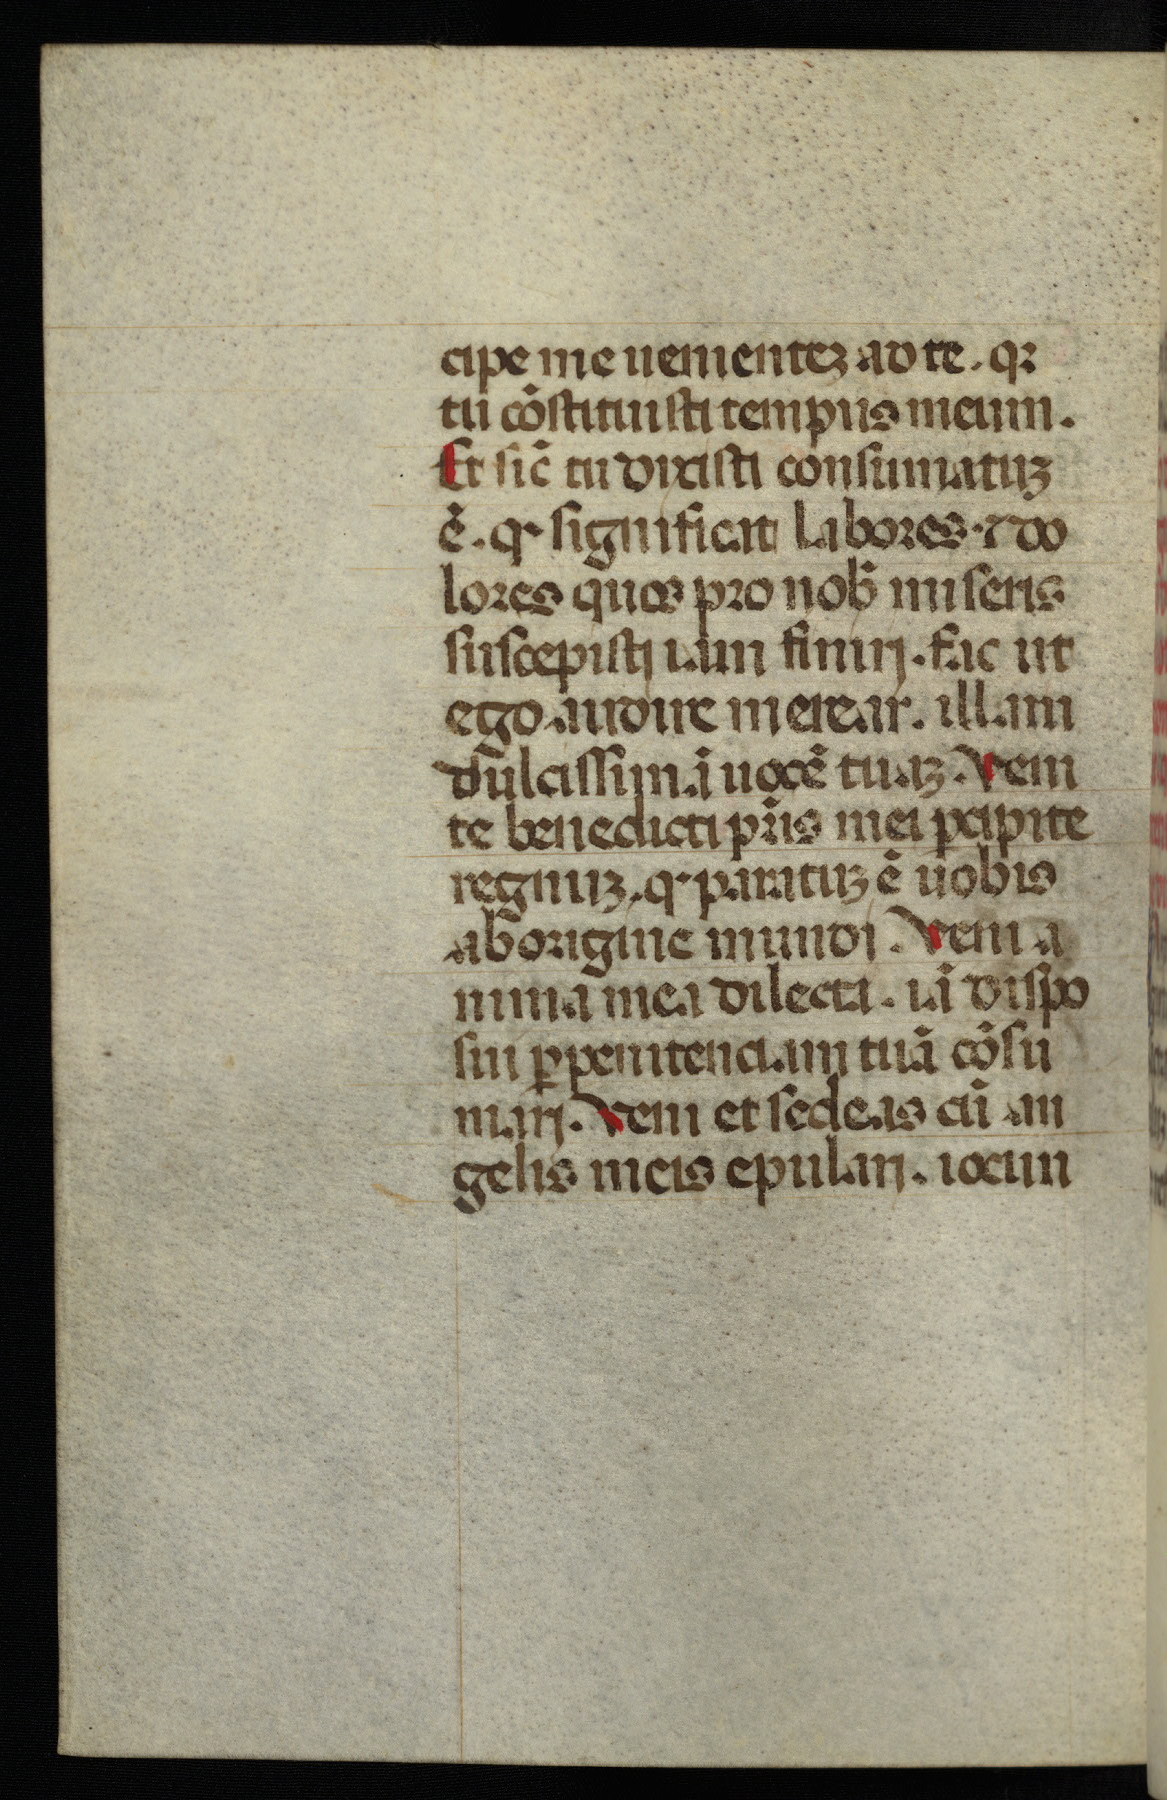 cipe me uenientez ad te. qꝛ
tu cōstituisti tempus meum.
Et sic̄ tu dixisti consumatuz
ē. qͬ significat labores ⁊ do
lores quos pro nob̄ miseris
suscepistj iam finirj. fac ut
ego audire merear. illam
dulcissimā uocē tuaz. Veni
te benedicti pr̄is mei pcipite
regnuz. qͬ paratuz ē uobis
ab origine mundj. Veni a
nima mea dilecta. iā dispo
sui ꝑ penitenciam tuā cōsu
marj. Veni et sedeas cū an
gelis meis epularj. iocun